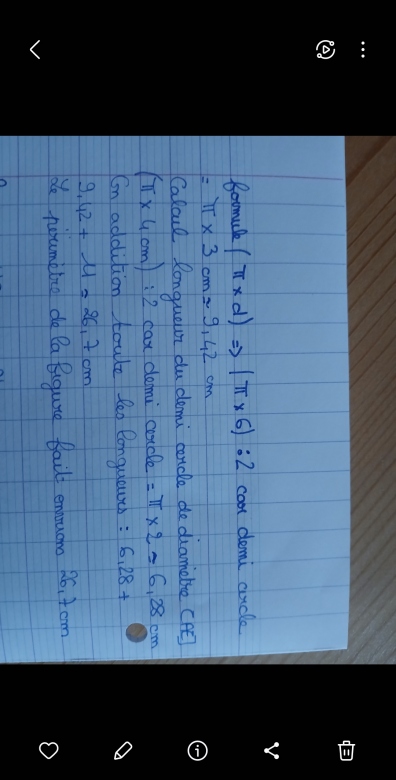 formule (π x d) => (π x 6) : 2 car demi cercle
= π x 3 cm ≈ 9,42 cm
Calcul longueur du demi cercle de diamètre [AE]
(π x 4 cm) : 2 car demi cercle = π x 2 ≈ 6,28 cm
On addition toute les longueurs : 6,28 +
9,42 + 11 ≈ 26,7 cm
Le périmètre de la figure fait environ 26,7 cm